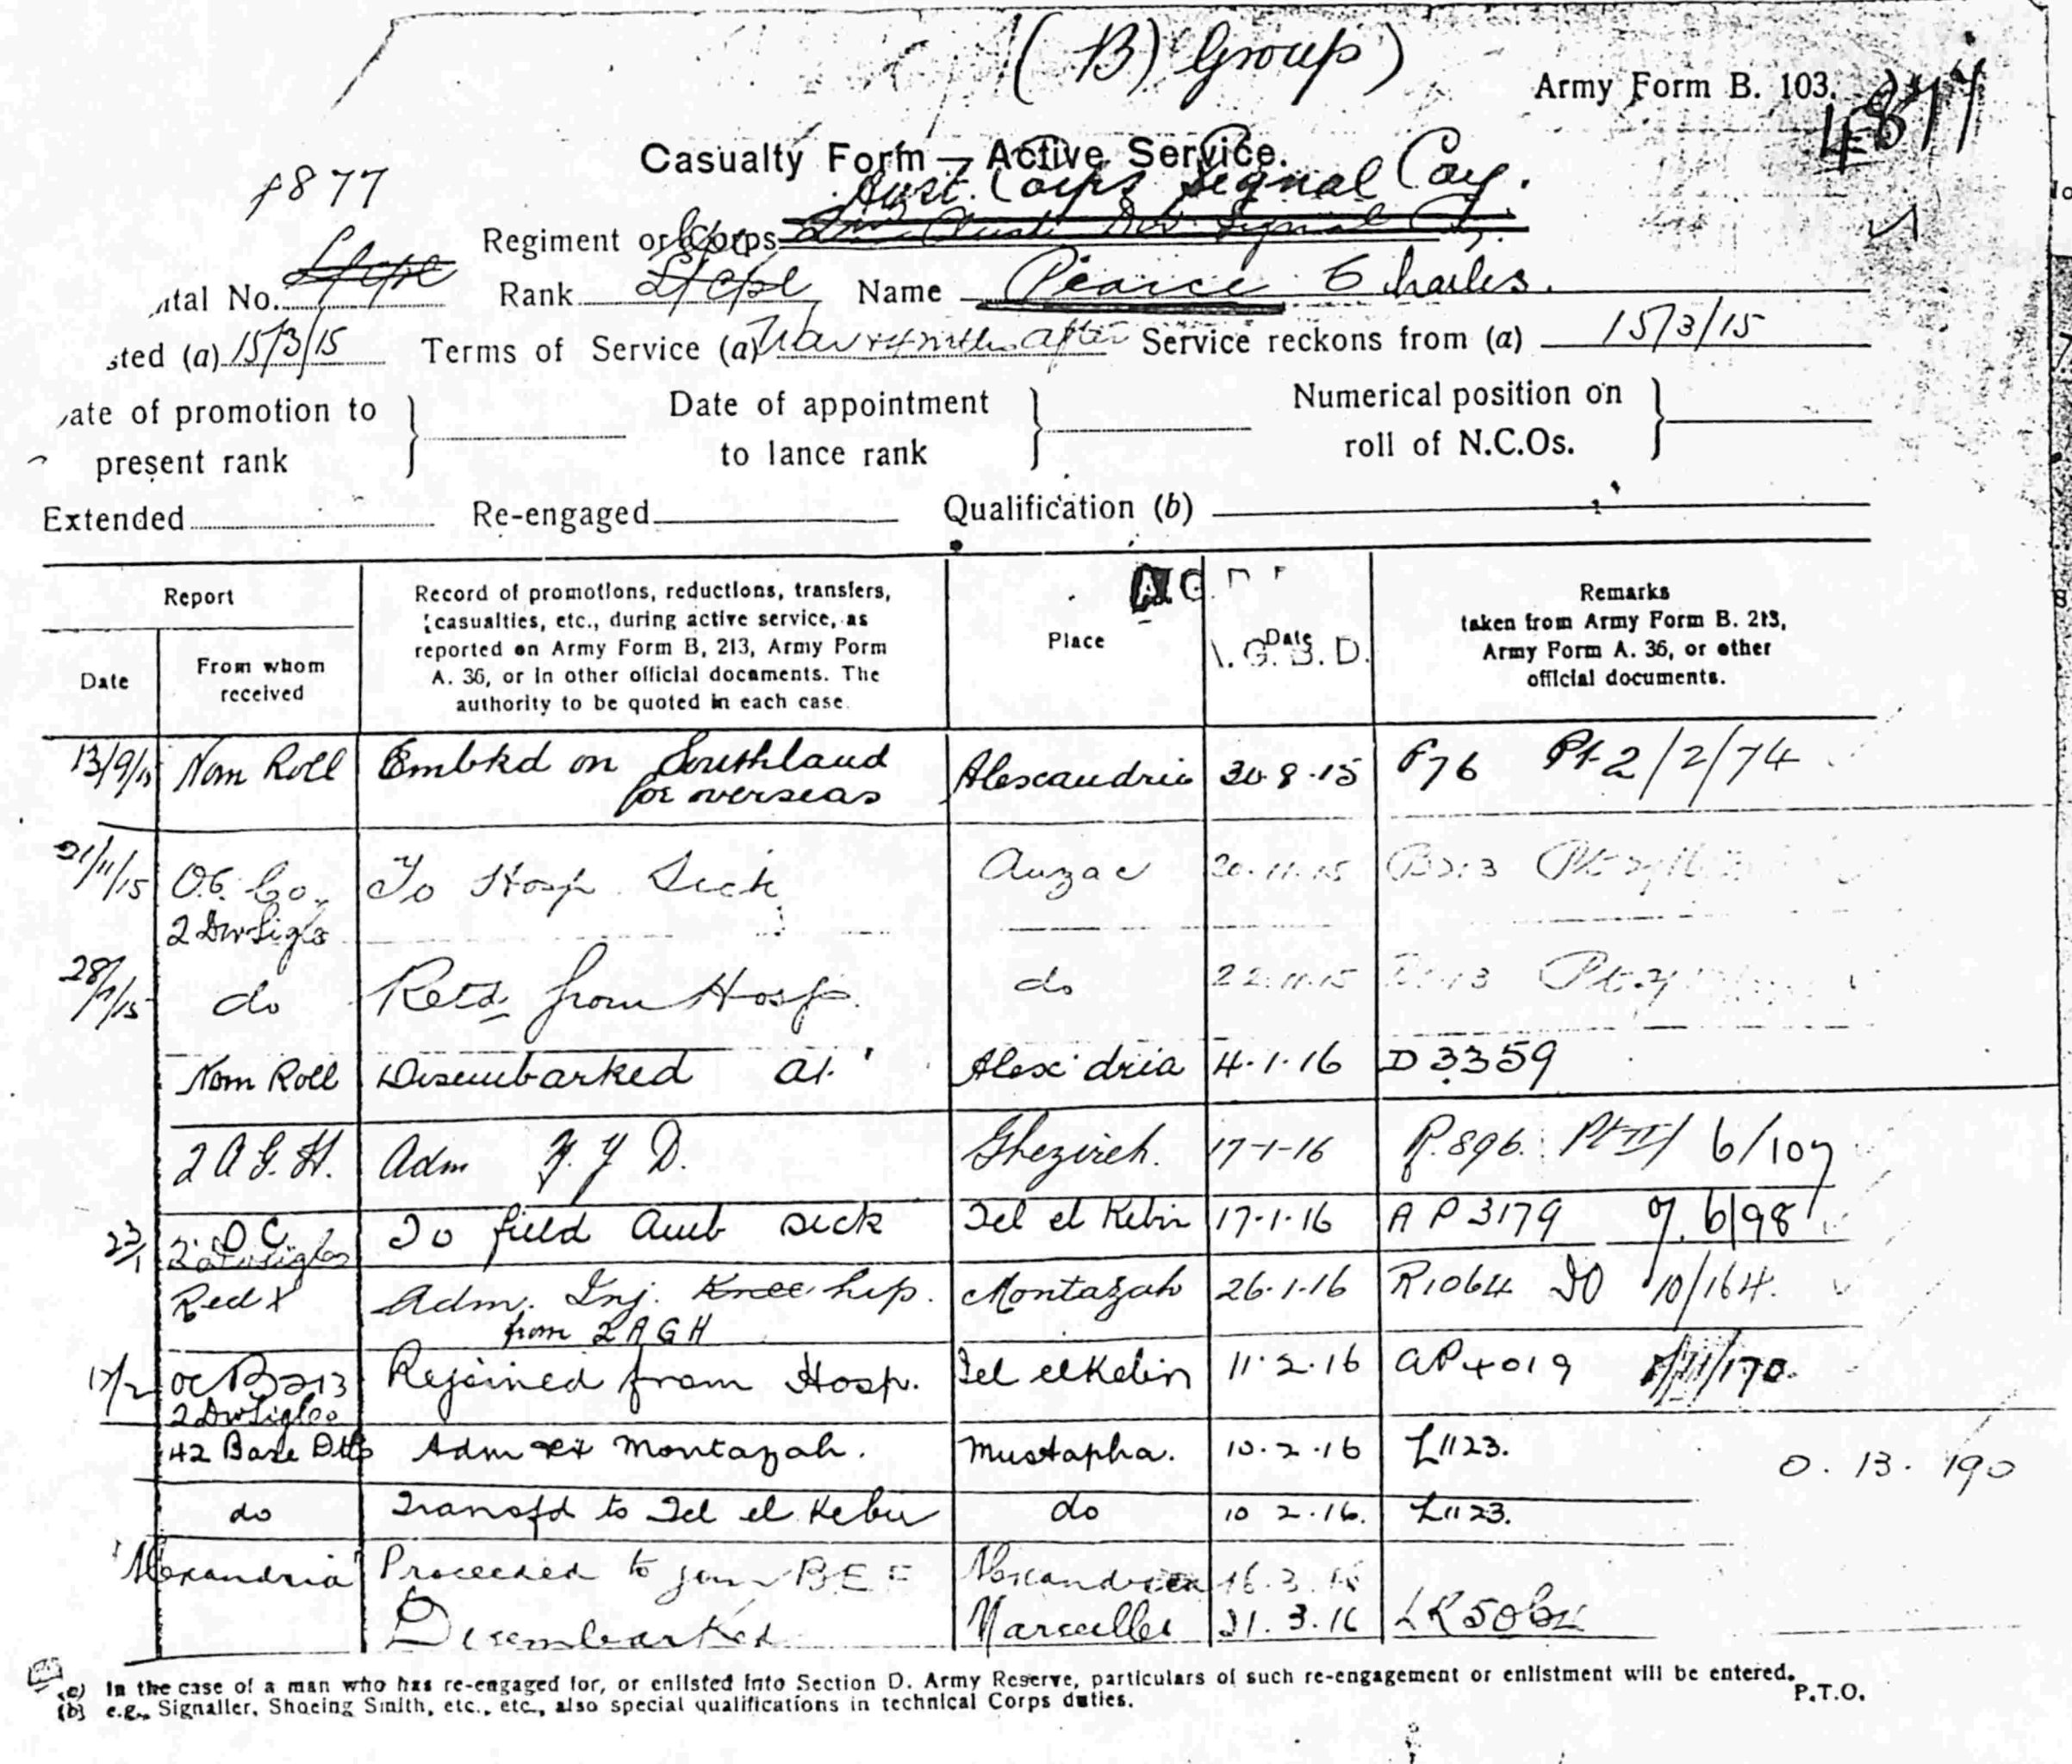 (B) Group)
Army Form B. 103.
4877
Casualty Form — Active Service.
Aust. Corps Signal Coy.
Regiment or Corps
L/Cpl
ntal No. Rank L/Cpl Name Pearce Charles.
sted (a) 15/3/15 Terms of Service (a) War & 4 mths after Service reckons from (a) 15/3/15
ate of promotion to present rank } Date of appointment to lance rank } Numerical position on roll of N.C.Os. }
Extended Re-engaged Qualification (b)
A.G.
Report
Date
From whom received
Record of promotions, reductions, transfers, casualties, etc., during active service, as reported on Army Form B, 213, Army Form A. 36, or in other official documents. The authority to be quoted in each case.
Place
Date
.G.B.D.
Remarks taken from Army Form B. 213, Army Form A. 36, or other official documents.
13/9/15 Nom Roll Embkd on Southland for overseas Alexandria 30.8.15 F76 Pt 2/2/74
21/11/15 O.C. Co. 2 Div Sigls To Hosp Sick Anzac 20.11.15 B213
28/11/15 do Retd from Hosp. do 22.11.15
Nom Roll Disembarked at Alex'dria 4.1.16 D 3359
2 A.G.H. Adm N.Y.D. Ghezireh. 17-1-16 R.896. Pt II/ 6/107
23/1 O.C. 2 Div Sigls To field Amb sick Tel el Kebir 17.1.16 A P 3179 6/98
Red X Adm. Inj. Knee hip. from 2 AGH Montazah 26.1.16 R1064 DO 10/164.
17/2 OC B213 2 Div Sigls Rejoined from Hosp. Tel el Kebir 11.2.16 AP 4019 /170.
42 Base Dtls Adm ex Montazah. Mustapha. 10.2.16 L1123. 0.13.190
do Transfd to Tel el Kebir do 10 2.16. L1123.
Alexandria Proceeded to join BEF Alexandria 16.3.16
Disembarked Marseilles 21.3.16
(a) In the case of a man who has re-engaged for, or enlisted into Section D. Army Reserve, particulars of such re-engagement or enlistment will be entered.
(b) e.g., Signaller, Shoeing Smith, etc., etc., also special qualifications in technical Corps duties.
P.T.O.